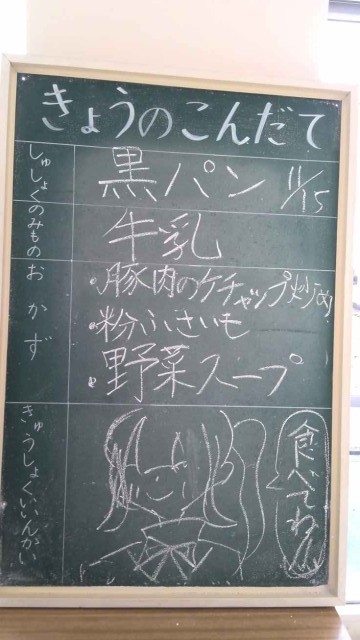 きょうのこんだて
しゅしょく
黒パン 11/15
のみもの
牛乳
おかず
・豚肉のケチャップ炒め
・粉ふきいも
・野菜スープ
きゅうしょくいいんかい
食べてね!!